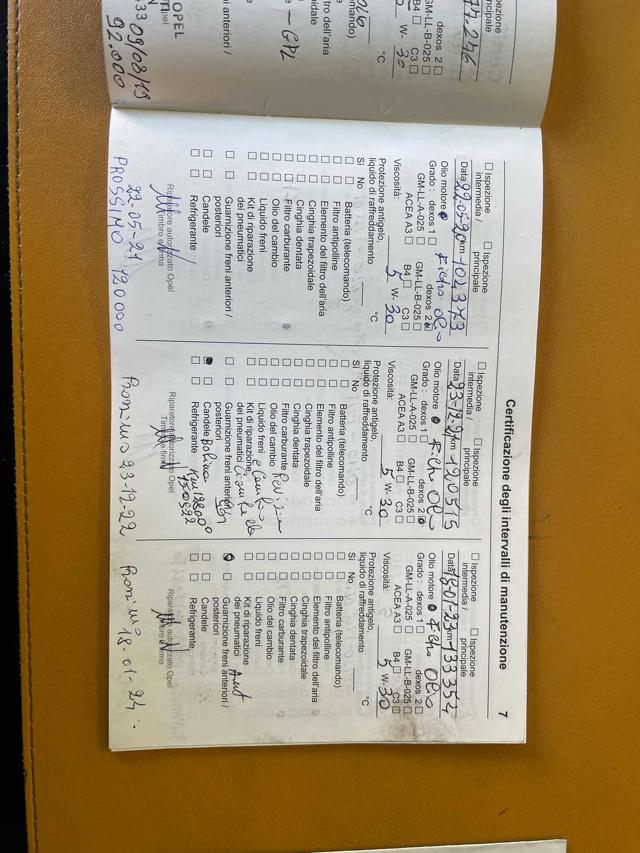 Certificazione degli intervalli di manutenzione
7
□ Ispezione intermedia / □ Ispezione principale
Data 22.05.20 km 102373
Olio motore Filtro Olio
Grado : dexos 1 □ dexos 2
GM-LL-A-025 □ GM-LL-B-025 □
ACEA A3 □ B4 □ C3 □
Viscosità: 5 W- 30
Protezione antigelo,
liquido di raffreddamento °C
Sì No
□ □ Batteria (telecomando)
□ □ Filtro antipolline
□ □ Elemento del filtro dell'aria
□ □ Cinghia trapezoidale
□ □ Cinghia dentata
□ □ Filtro carburante
□ □ Olio del cambio
□ □ Liquido freni
□ □ Kit di riparazione
dei pneumatici
□ □ Guarnizione freni anteriori /
posteriori
□ □ Candele
□ □ Refrigerante
Riparatore autorizzato Opel
Timbro e firma
22-05-21 120000
PROSSIMO
□ Ispezione intermedia / □ Ispezione principale
Data 23-12-21 km 120515
Olio motore Filtro Olio
Grado : dexos 1 □ dexos 2
GM-LL-A-025 □ GM-LL-B-025 □
ACEA A3 □ B4 □ C3 □
Viscosità: 5 W- 30
Protezione antigelo,
liquido di raffreddamento °C
Sì No
□ □ Batteria (telecomando)
□ □ Filtro antipolline
□ □ Elemento del filtro dell'aria
□ □ Cinghia trapezoidale
□ □ Cinghia dentata
□ □ Filtro carburante
□ □ Olio del cambio
□ □ Liquido freni
□ □ Kit di riparazione
dei pneumatici
□ □ Guarnizione freni anteriori /
posteriori
□ Candele
□ □ Refrigerante
Riparatore autorizzato Opel
Timbro e firma
Prossimo 23-12-22
□ Ispezione intermedia / □ Ispezione principale
Data 18-01-23 km 133354
Olio motore Filtro Olio
Grado : dexos 1 □ dexos 2 □
GM-LL-A-025 □ GM-LL-B-025 □
ACEA A3 □ B4 □ C3 □
Viscosità: 5 W- 30
Protezione antigelo,
liquido di raffreddamento °C
Sì No
□ □ Batteria (telecomando)
□ □ Filtro antipolline
□ □ Elemento del filtro dell'aria
□ □ Cinghia trapezoidale
□ □ Cinghia dentata
□ □ Filtro carburante
□ □ Olio del cambio
□ □ Liquido freni
□ □ Kit di riparazione
dei pneumatici
□ Guarnizione freni anteriori / Ant
posteriori
□ □ Candele
□ □ Refrigerante
Riparatore autorizzato Opel
Timbro e firma
Prossimo 18-01-24
GPL
OPEL
09/08/19
92.000